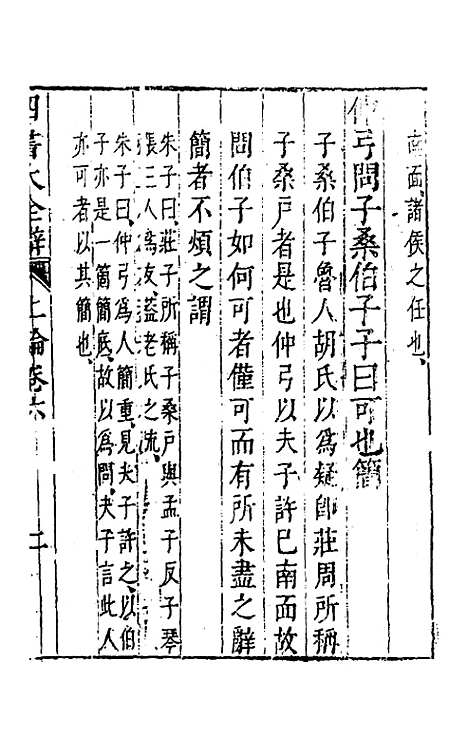 南面、諸侯之任也、
仲弓問子桑伯子子曰可也簡
子桑伯子魯人胡氏以爲疑卽莊周所稱
子桑戶者是也仲弓以夫子許已南面故
問伯子如何可者僅可而有所未盡之辭
簡者不煩之謂
朱子曰、莊子所稱子桑戶與孟子反子琴
張三人爲友蓋老氏之流、
朱子曰、仲弓爲人簡重、見夫子許之、以伯
子亦是一箇簡底、故以爲問、夫子言此人
亦可者以其簡也、
四書大全辯 上論卷六 二